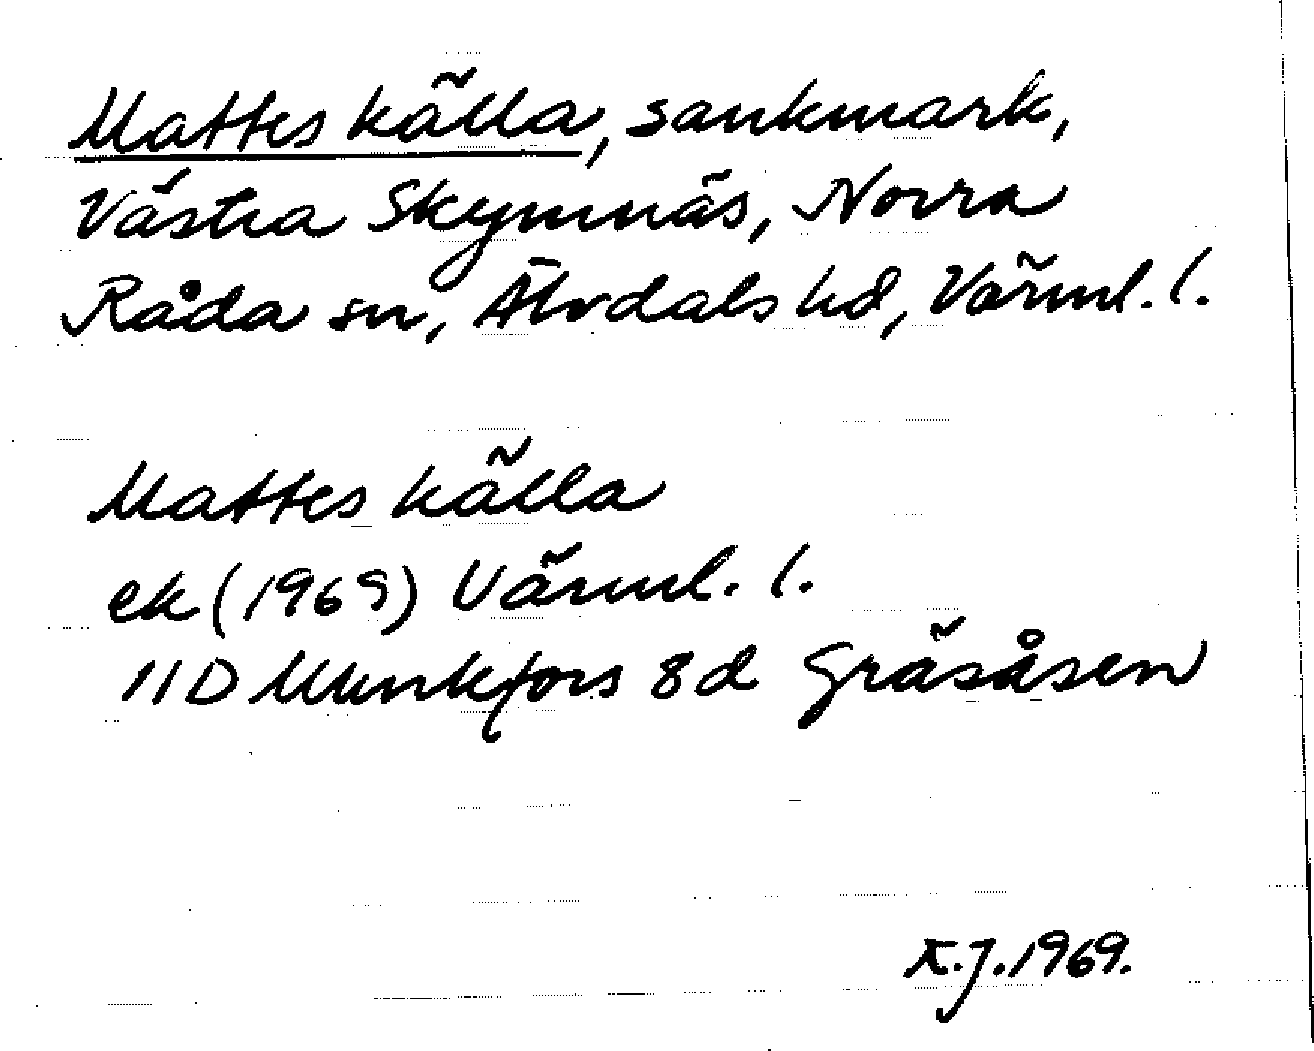 Mattes källa, sankmark,
Västra Skymnäs, Norra
Råda sn, Älvdals hd, Värml. l.
Mattes källa
ek (1969) Värml. l.
11D Munkfors 8d Gräsåsen
K.J. 1969.